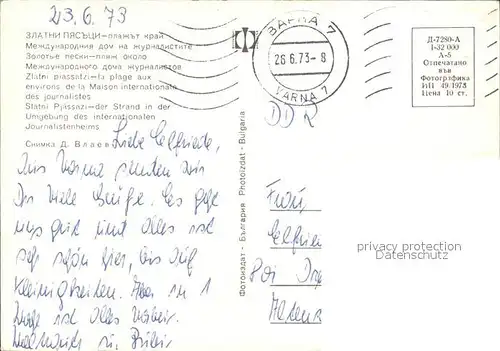 23.6.73
ЗЛАТНИ ПЯСЪЦИ—плажът край
Международния дом на журналистите
Золотые пески—пляж около
Международного дома журналистов
Zlatni piassatzi—la plage aux
environs de la Maison internationale
des journalistes
Slatni Pjassazi—der Strand in der
Umgebung des internationalen
Journalistenheims
Снимка Д. Влаев
ВАРНА 7
26.6.73-8
VARNA 7
Д-7280-А
1-32 000
А-5
Отпечатано
във
Фотографика
ИП 49/1973
Цена 10 ст.
DDR
Liebe Elfriede,
Aus Varna senden wir
Dir viele Grüße. Es geht
uns gut und alles ist
sehr schön hier, bis auf
Kleinigkeiten. Aber in 1
Woche ist alles vorbei.
Фотоиздат - България Photoizdat - Bulgaria
Frau
Elfrie
801 Dre
Altena
privacy protection
Datenschutz